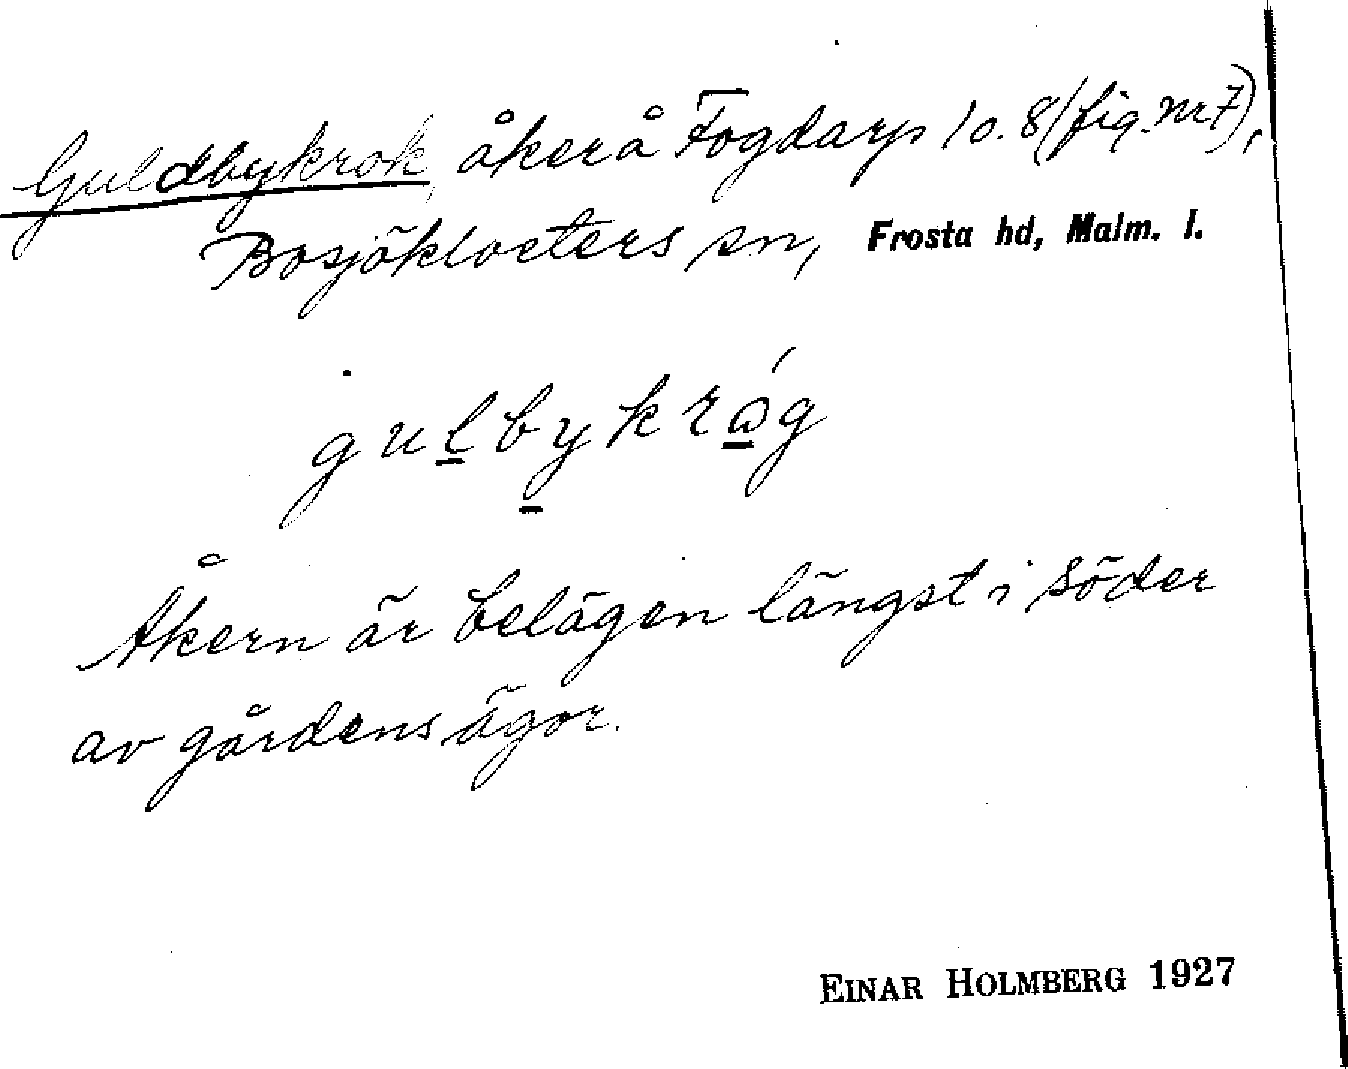 Guldbykrok, åker å Fogdarp 1 o. 8 (fig. nr 7),
Bosjöklosters sn, Frosta hd, Malm. l.
gulbykrǻg
Åkern är belägen längst i söder
av gårdens ägor.
EINAR HOLMBERG 1927